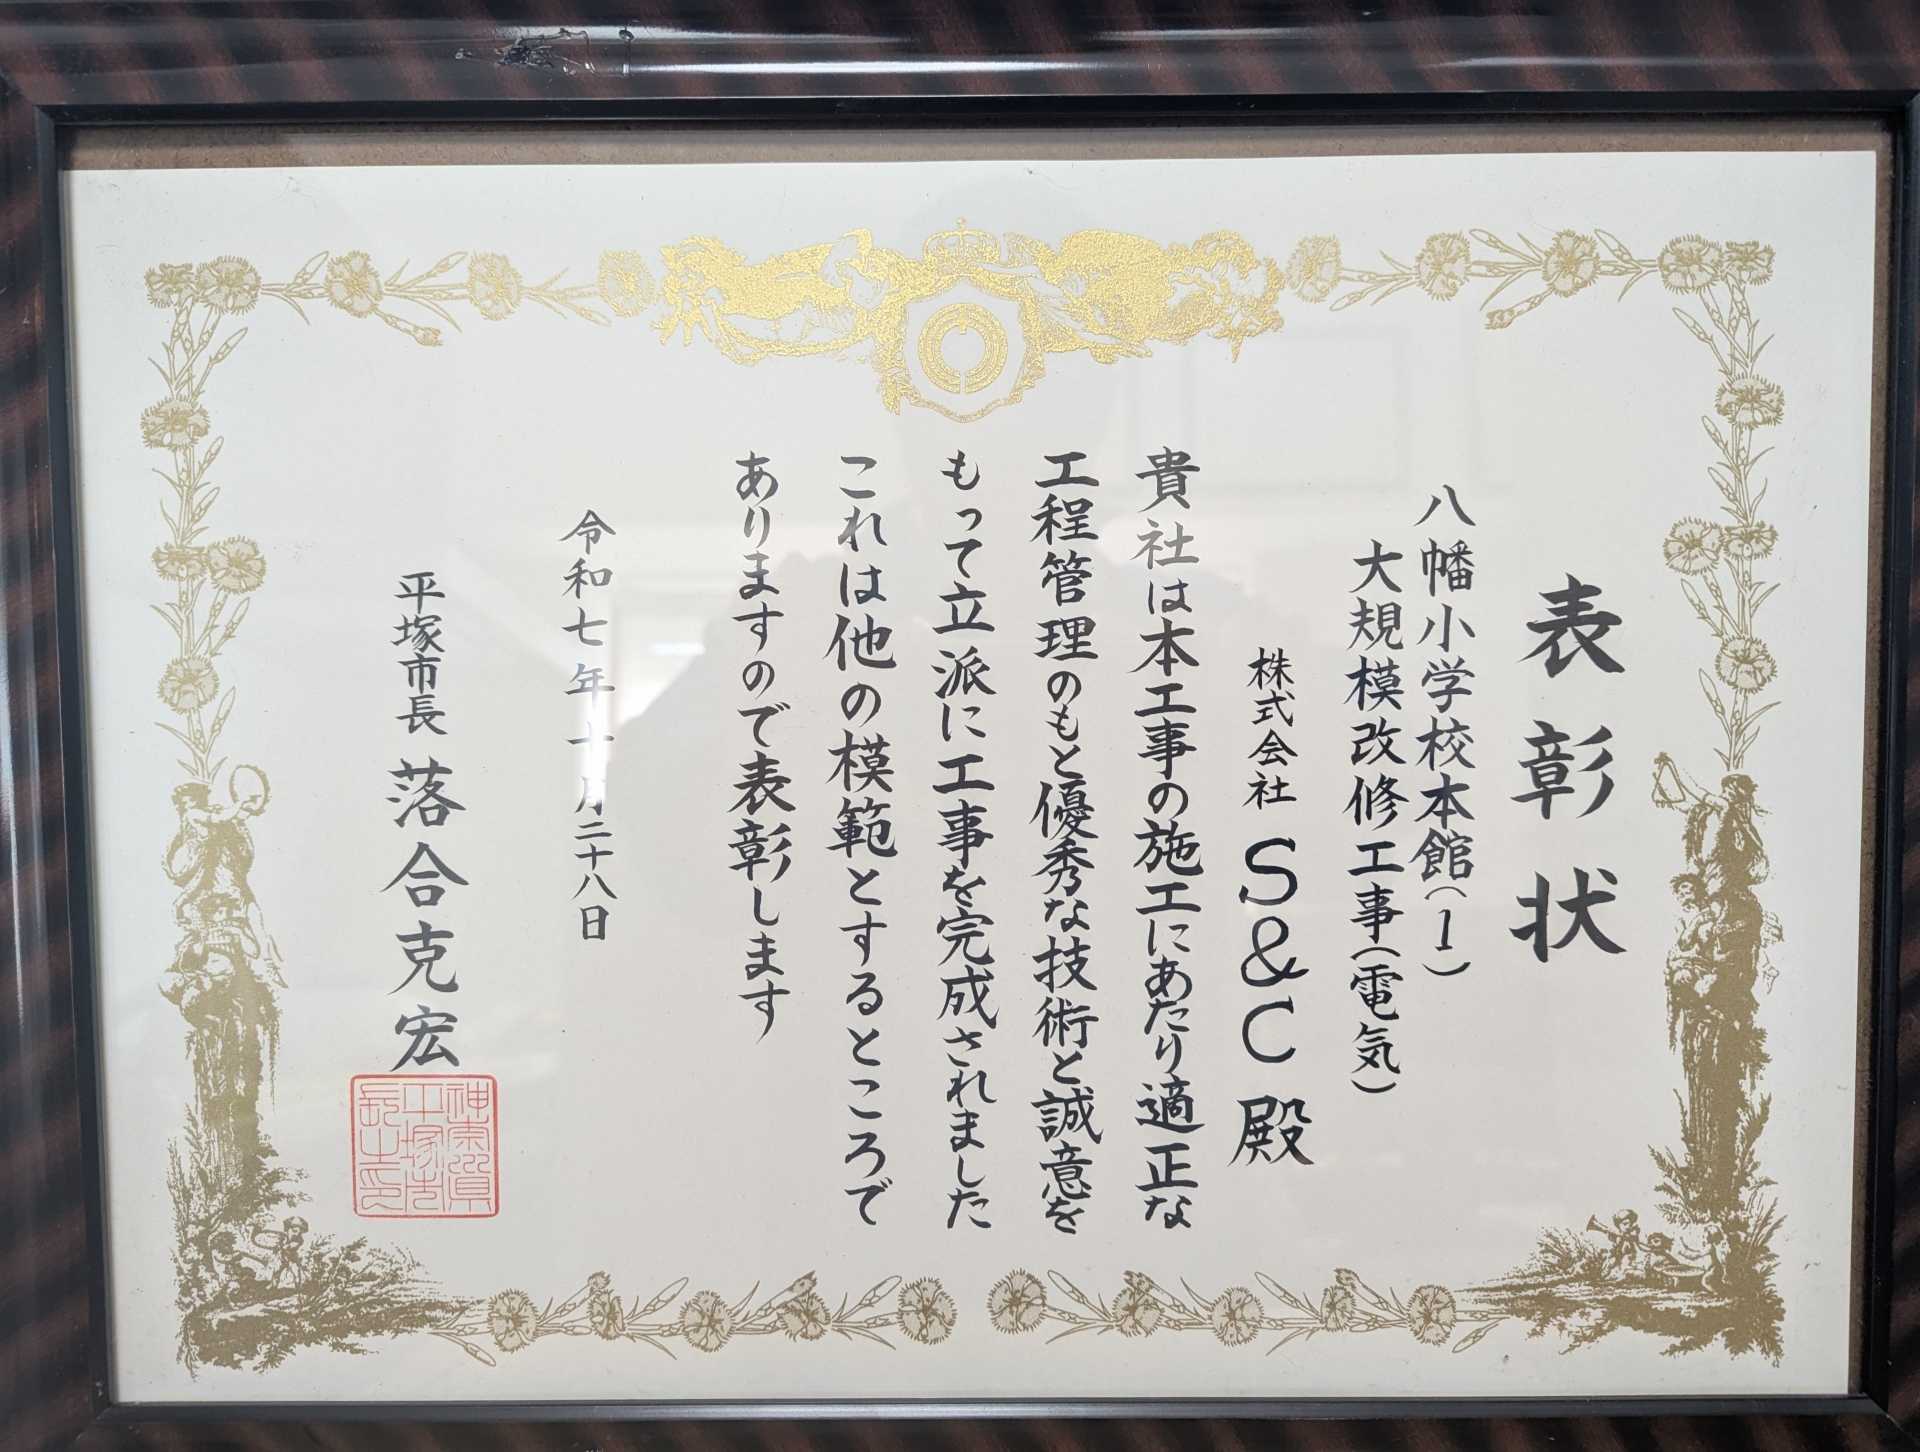 表彰状
八幡小学校本館(1)
大規模改修工事(電気)
株式会社 S&C 殿
貴社は本工事の施工にあたり適正な
工程管理のもと優秀な技術と誠意を
もって立派に工事を完成されました
これは他の模範とするところで
ありますので表彰します
令和七年十月二十八日
平塚市長 落合克宏
神奈川県平塚市長之印